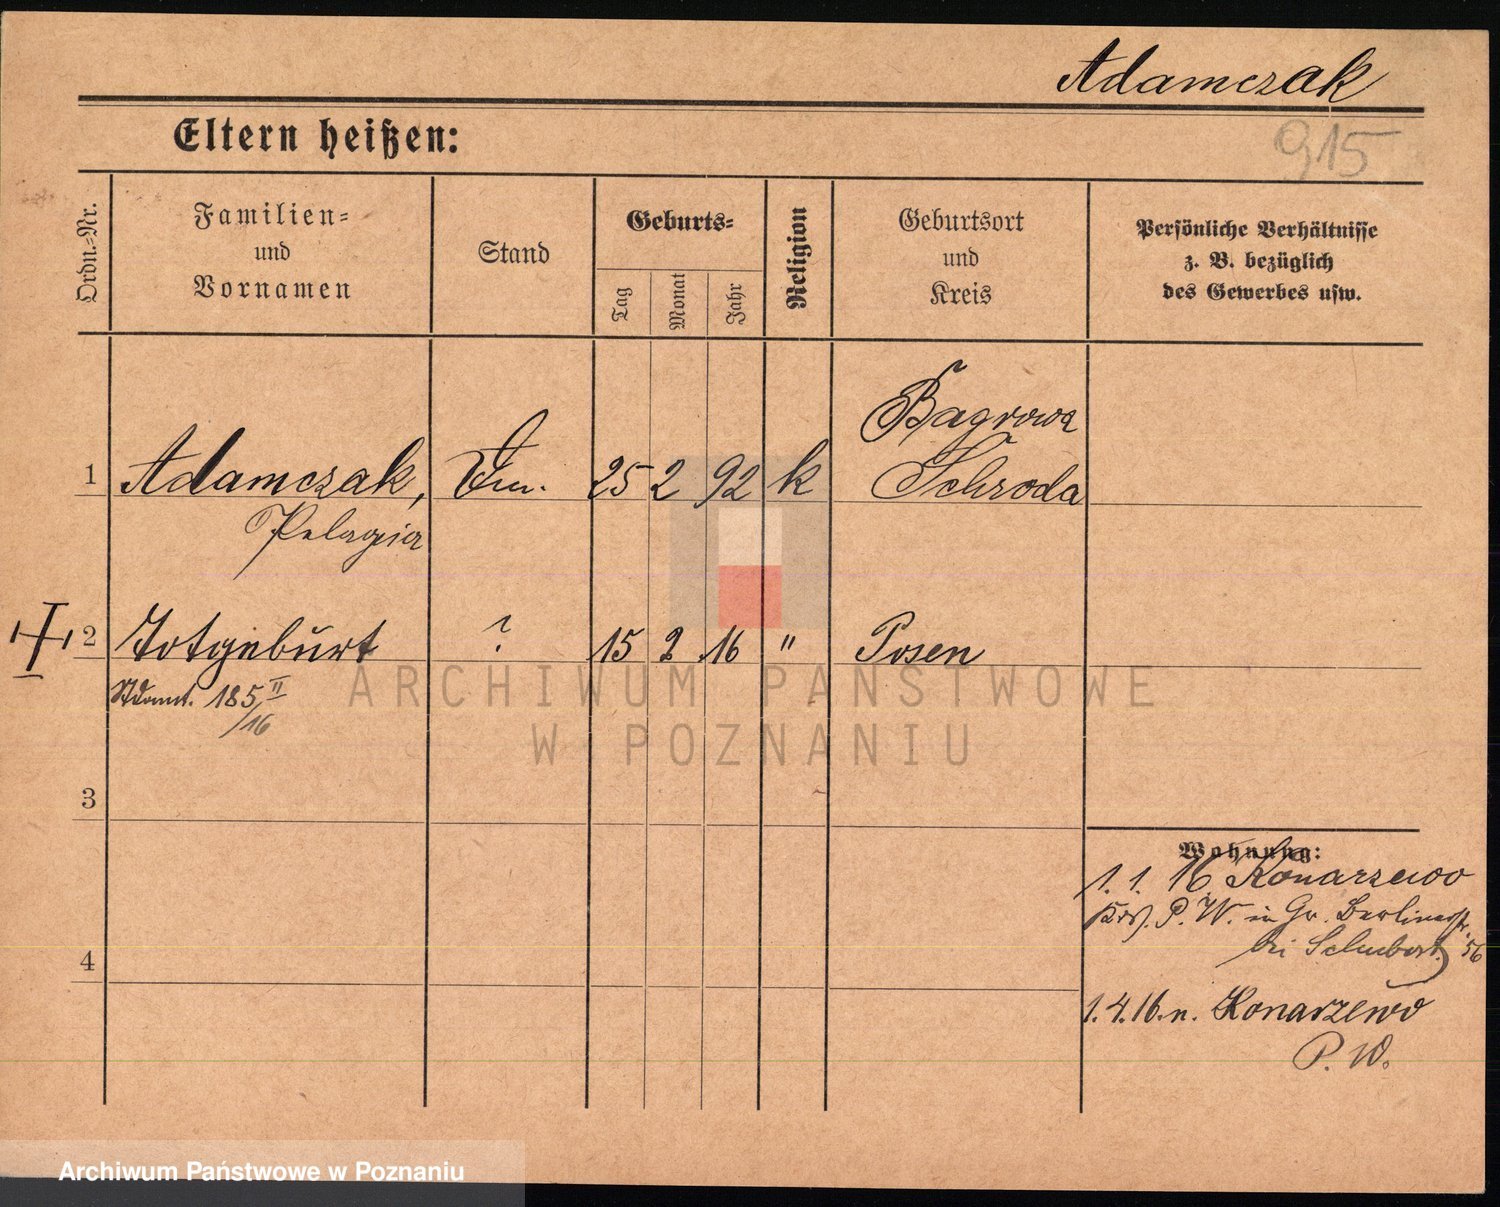 Adamczak
915
Eltern heißen:
Ordn.-Nr.
Familien- und Vornamen
Stand
Geburts-
Tag
Monat
Jahr
Religion
Geburtsort und Kreis
Persönliche Verhältnisse
z. B. bezüglich
des Gewerbes usw.
Bagrowo
1 Adamczak, 25 2 92 k Schroda
Pelagia
2 Totgeburt ? 15 2 16 " Posen
Stdamt. 185 II
/16
ARCHIWUM PAŃSTWOWE
W POZNANIU
3
Wohnung:
1. 1. 16 Konarzewo
Krs. P. W. in Gr. Berlinerstr. 56
4
bei Schubert
1.4.16. n. Konarzewo
P. W.
Archiwum Państwowe w Poznaniu